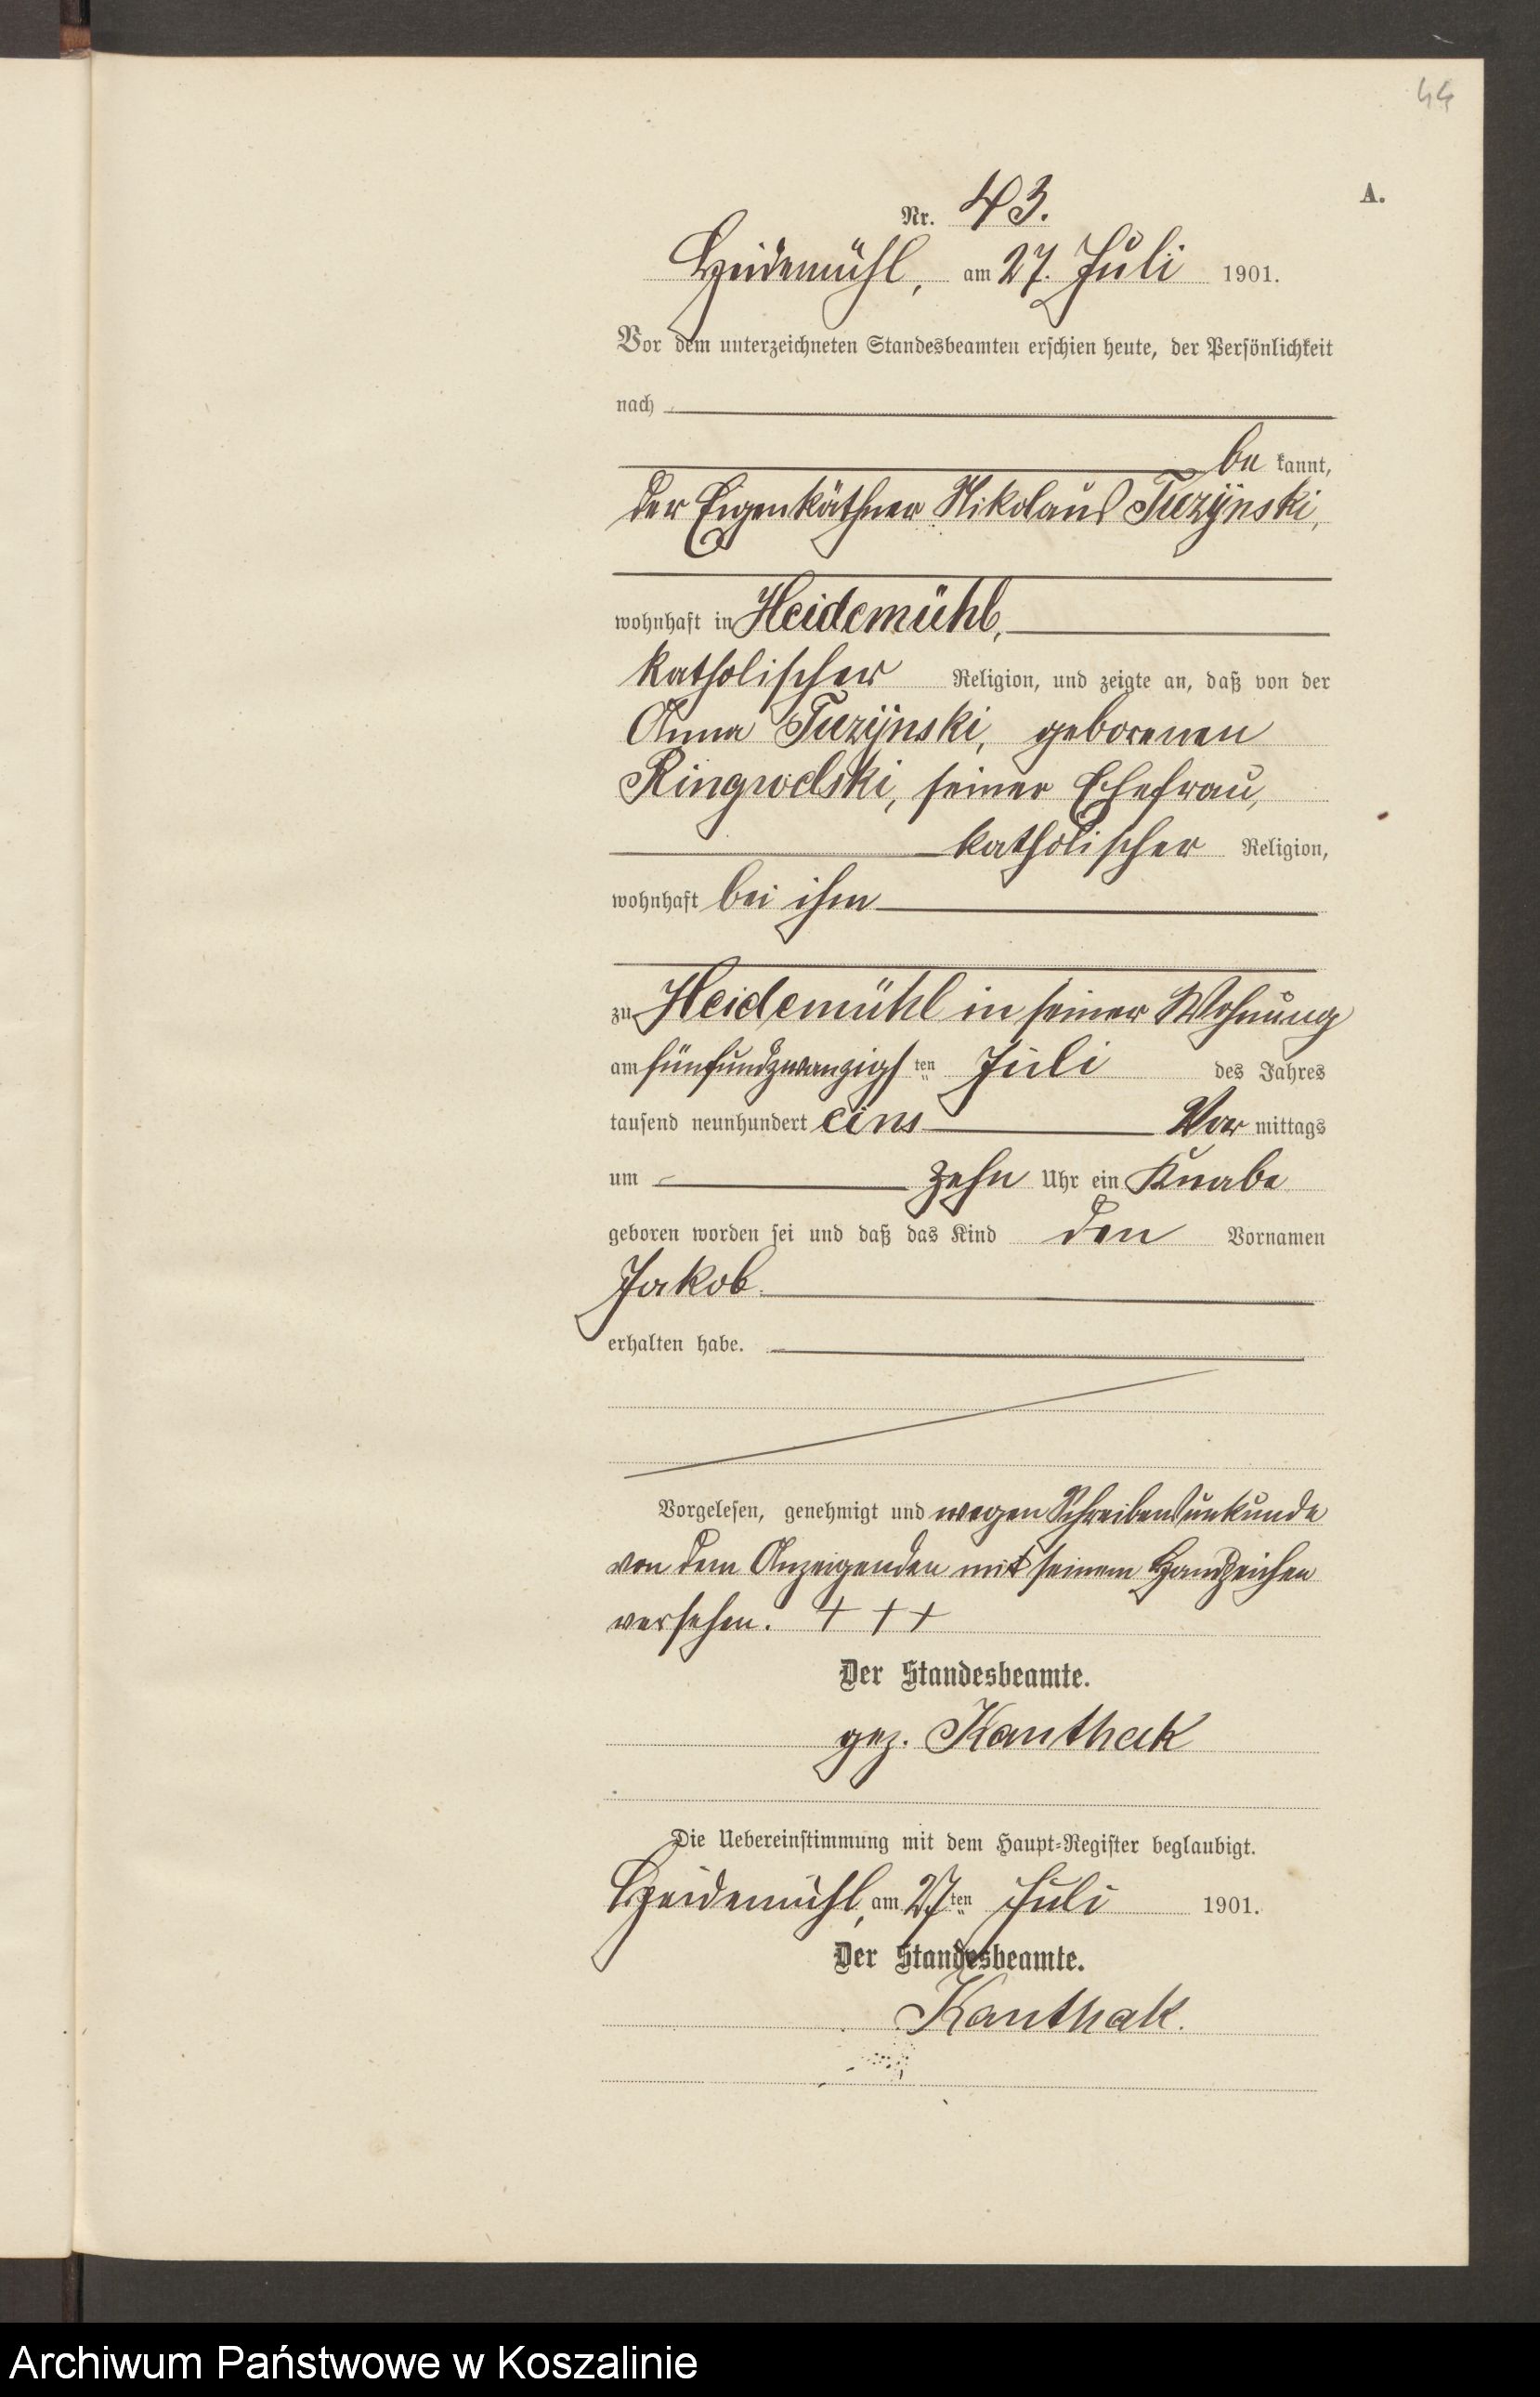 44
A.
Nr. 43.
Heidemühl, am 27. Juli 1901.
Vor dem unterzeichneten Standesbeamten erschien heute, der Persönlichkeit
nach
be kannt,
der Eigenkäthner Nikolaus Tuzÿnski,
wohnhaft in Heidemühl,
katholischer Religion, und zeigte an, daß von der
Anna Tuzÿnski, geborenen
Ringwelski, seiner Ehefrau,
katholischer Religion,
wohnhaft bei ihm
zu Heidemühl in seiner Wohnung
am fünfundzwanzigsten Juli des Jahres
tausend neunhundert eins Vor mittags
um zehn Uhr ein Knabe
geboren worden sei und daß das Kind den Vornamen
Jakob
erhalten habe.
Vorgelesen, genehmigt und wegen Schreibensunkunde
von dem Anzeigenden mit seinem Handzeichen
versehen. + + +
Der Standesbeamte.
gez. Kanthak
Die Uebereinstimmung mit dem Haupt-Register beglaubigt.
Heidemühl, am 27ten Juli 1901.
Der Standesbeamte.
Kanthak.
Archiwum Państwowe w Koszalinie